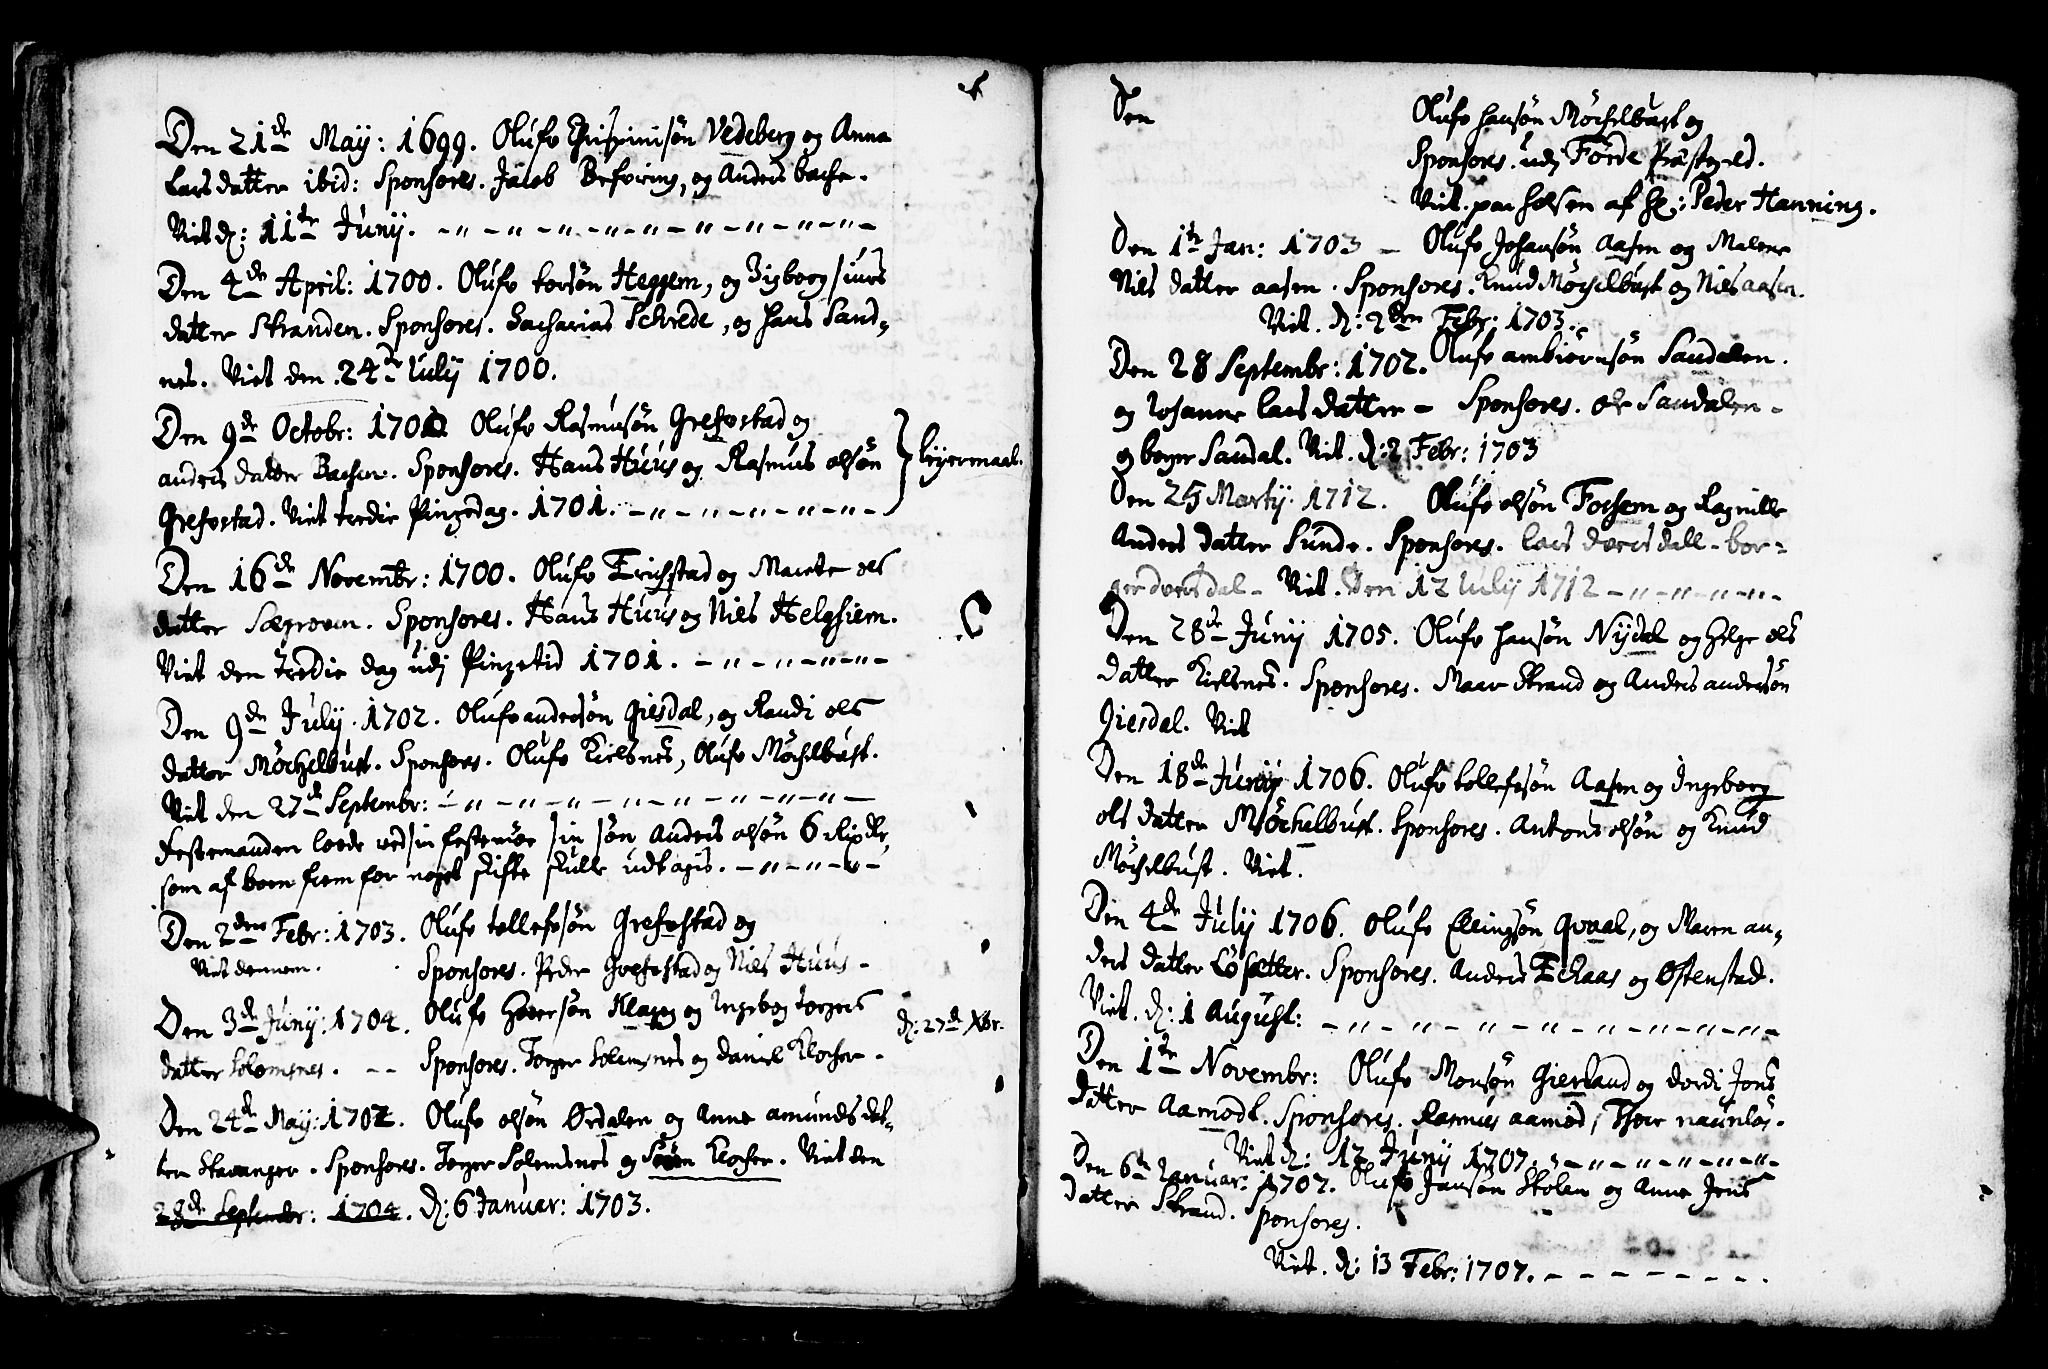 Den 21de Maÿ: 1699. Olüfv Crispinisön Vedeberg og Anna
Lars datter ibid: Sponsores. Jacob Befvring, og Anders bache.
Viet d: 11te Junÿ.
Den 4de April: 1700. Olüfv Torsön Heggem, og Zigborg siurs
datter Stranden. Sponsores. Zacharias Schrede, og Hans Sand=
nes. Viet den 24de Julÿ 1700.
Den 9de Octobr: 1700 Olüfv Rasmusön Grefvstad og
anders datter Bachen. Sponsores. Hans Huus og Rasmus olsön
Grefvstad. Viet tredie Pingedag. 1701.
leyermaal.
Den 16de Novembr: 1700. Olüfv Erichstad og Marete ols
datter Sægroven. Sponsores. Hans Huus og Niels Helghiem.
Viet den tredie dag udj Pingetid 1701.
Den 9de Julÿ. 1702. Olüfv andersön Giesdal, og Randi ols
datter Möchelbust. Sponsores. Olüfv Kielsnes, Olüfv Möchlbust.
Viet den 27de Septembr:
Festemanden lovde ved sin festemöe sin sön Anders olsön 6 Rixdlr,
som af boen frem for noget skifte skulle udtagis.
Den 2den Febr: 1703. Olüfv tollefsön Grefvstad og
Viet dennem. Sponsores. Peder Grefvstad og Niels Huus
Den 3de Junÿ: 1704. Olüfv Hversön Klagg og Ingebog torgers
d: 27de Xbr.
datter Solemsnes. Sponsores. Torger Solemsnes og Daniel Klocher
Den 24de Maÿ: 1702. Olüfv olsön Ørdalen og Anne amunds dat=
ter Stavanger. Sponsores. Torger Solemsnes og Sören Klocher. Viet den
28de Septembr: 1704. d: 6 Januar: 1703.
Den Olüfv Hansön Möchelbust og
Sponsores. udj Förde Præstegield.
Viet paa Holsen af Hr: Peder Hanning.
Den 1te Jan: 1703 Olüfv Johansön Aasen og Malene
Niels datter aasen. Sponsores. Knud Möchelbust og Niels aasen.
Viet. d: 2den Febr: 1703.
Den 28 Septembr: 1702. Olüfv ambiörnsön Sandalen.
og Johanne Lars datter Sponsores. ole Sandalen
og börger Sandal. Viet. d: 2 Febr: 1703
Den 25 Martÿ. 1712. Olüfv olsön Fossem og Ragnille
Anders datter Sunde. Sponsores. Lars dversdall bor=
ger dversdal Viet. den 12 Julÿ 1712
Den 28de Junÿ 1705. Olüfv Hansön Nÿdal og Helge ols
datter Kielsnes. Sponsores. Maar Strand og Anders andersön
Giesdal. Viet
Den 18de Junÿ 1706. Olüfv tollefsön Aasen og Ingeborg
ols datter Möchelbust. Sponsores. Antons olsön og Knud
Möchelbust. Viet.
Den 4de Julÿ 1706. Olüfv Ellingsön Qvaal, og Maren an=
ders datter Lösætter. Sponsores. Anders Echaas og Østenstad.
Viet. d: 1 August:
Den 1te Novembr: Olüfv Monsön Gierland og dordi Jons
datter Aamodt. Sponsores. Rasmus aamod, Thver naunlös.
Viet d: 12 Junÿ 1707.
Den 6te Januar: 1707. Olüfv Jansön Skolen og Anna Jens
datter Strand. Sponsores.
Viet. d: 13 Febr: 1707.